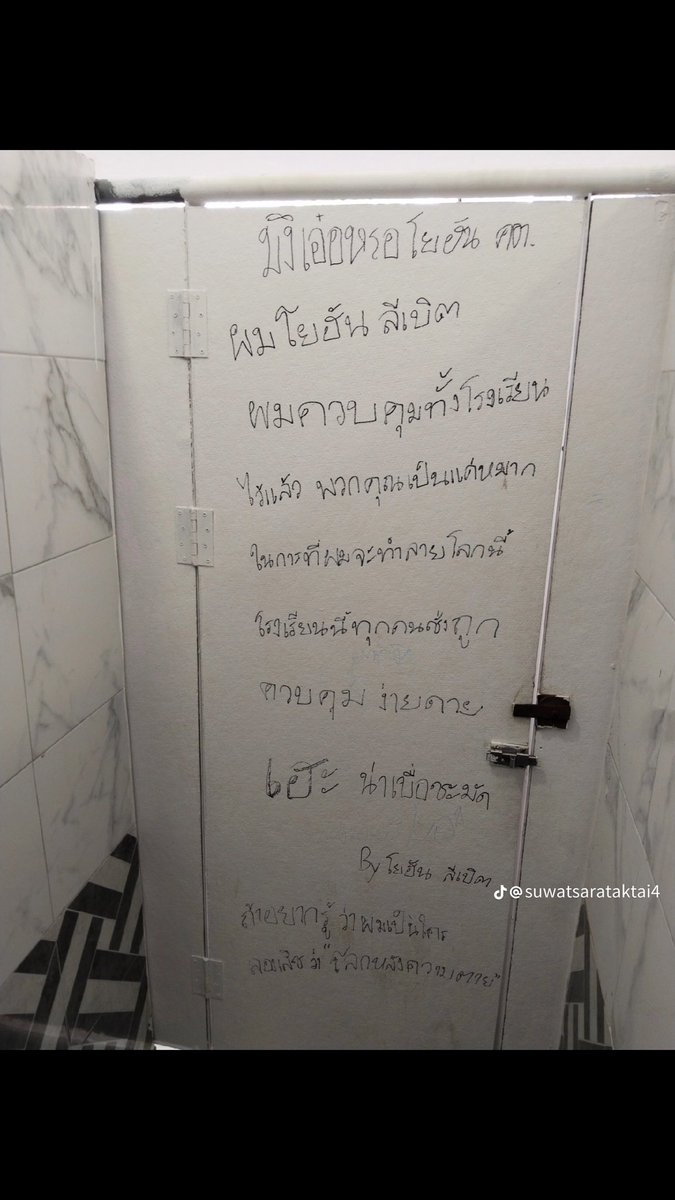 มึงเอ๋อหรอ โยฮัน คต.
ผม โยฮัน ลีเบิต
ผมควบคุมทั้งโรงเรียน
ไว้แล้ว พวกคุณเป็นแค่หมาก
ในการที่ผมจะทำลายโลกนี้
โรงเรียนนี้ทุกคนช่างถูก
ควบคุม ง่ายดาย
เฮ้ะ น่าเบื่อชะมัด
By โยฮัน ลีเบิต
ถ้าอยากรู้ ว่าผมเป็นใคร
ลองเสิช ว่า "โลกหลังความตาย"
@suwatsarataktai4